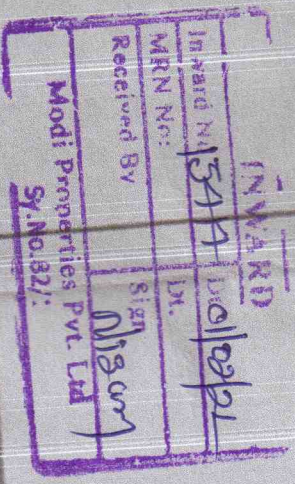 INWARD
Inward No: Dt. 01/02/21
MRN No: Dt.
Received By Sign
Modi Properties Pvt. Ltd
Sy.No.82/: